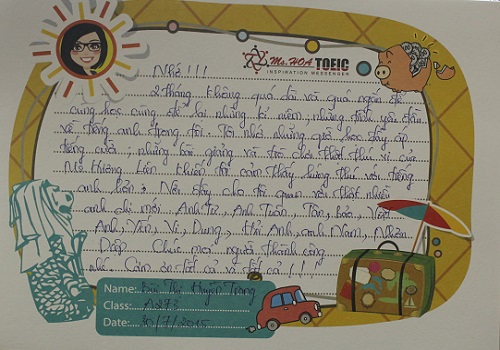 Ms.HOA TOEIC
INSPIRATION MESSENGER
Nhớ!!!
2 tháng không quá dài và quá ngắn để
cùng học cũng để lại những kỉ niệm, những tình yêu dành
về tiếng anh trong tôi. Tôi nhớ những giờ học đầy ắp
tiếng cười; những bài giảng và trò chơi thật thú vị của
Ms Hương Liên khiến tôi cảm thấy hứng thú với tiếng
anh hơn; Nơi đây cho tôi quen với thật nhiều
anh chị mới Anh Tú, Anh Tuấn, Tân, Bảo, Việt
Anh, Vân, Vi, Dung, Hà Anh, anh Nam, Nhàn
Diệp Chúc mọi người thành công
nhé. Cảm ơn tất cả vì tất cả!!!
Name: Thị Huyền Trang
Class: A273
Date: 30/7/2015